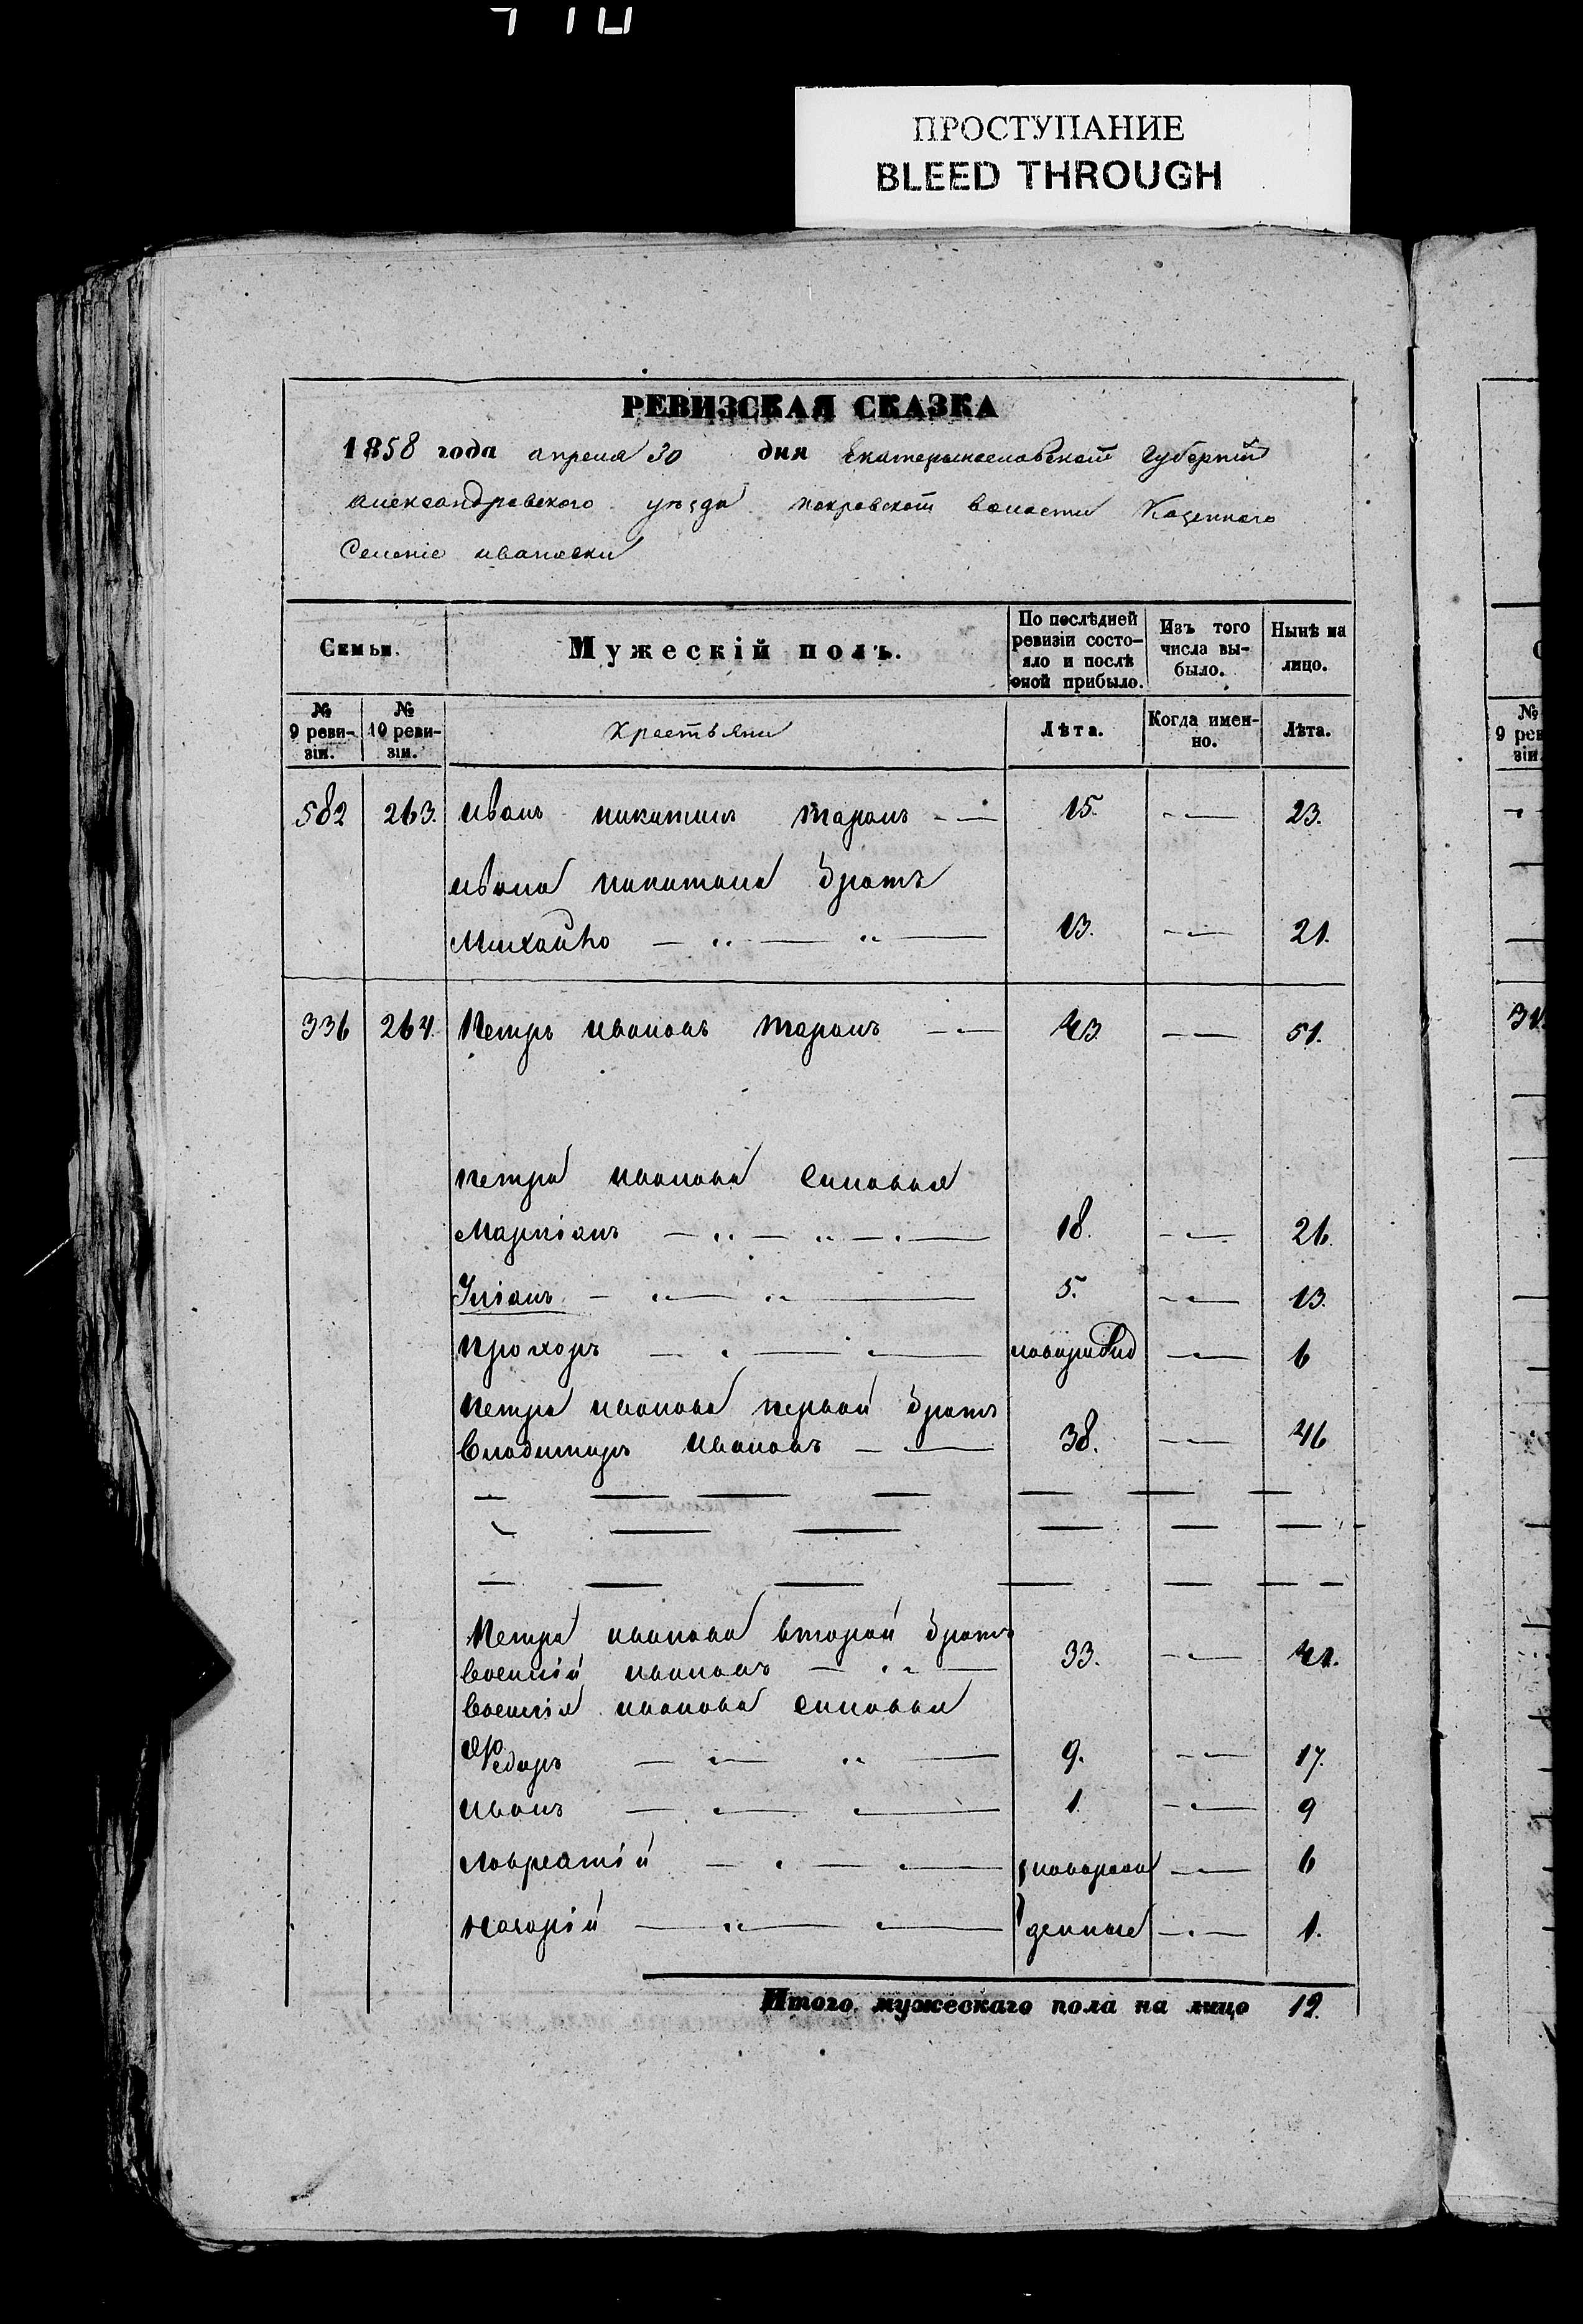 ПРОСТУПАНИЕ
BLEED THROUGH
РЕВИЗСКАЯ СКАЗКА
1858 года апреля 30 дня Екатеринославской Губерній
александровского уѣзда покровской волости Казенного
Селеніе ивановки
Семьи.
Мужескій полъ.
По послѣдней ревизіи состо-
яло и послѣ
оной прибыло.
Изъ того
числа вы-
было.
Нынѣ на
лицо.
№
9 реви-
зіи.
№
10 реви-
зіи.
Крестьяни
Лѣта.
Когда имен-
но.
Лѣта.
582 263. иванъ никитинъ таранъ 15. 23.
ивана никитина братъ
Михайло 13. 21.
336 264 Петръ ивановъ таранъ 43 51.
петра иванова синовья
Маркіанъ 18. 26.
Уліанъ 5. 13.
прохоръ новорожд 6
петра иванова первой братъ
владимиръ ивановъ 38. 46
Петра иванова второй братъ
василій ивановъ 33. 41.
василія иванова синовья
Федоръ 9. 17.
иванъ 1. 9
лаврентій новорож 6
назарій денные 1.
Итого мужескаго пола на лицо 12.
№
9 рев
зіи